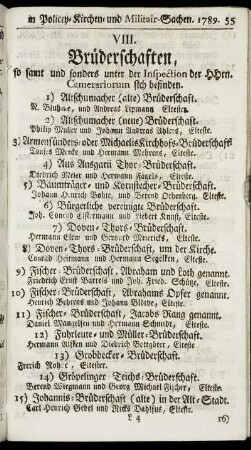 in Policey- Kirchen- und Militair-Sachen. 1789. 55
VIII.
Brüderschaften,
so samt und sonders unter der Inspection der HHrn.
Camerariorum sich befinden.
1) Altschumacher (alte) Brüderschaft.
und Andreas Eltste.
2) Altschumacher (neue) Brüderschaft.
Philip Muller und Johann Andreas Ahlers, Elteste.
3) Armensünders- oder Michaelis Kirchhofs-Brüderschaft
Mencke und Hermann Mehrens, Elteste.
4) Aus Ansgarii Thor-Brüderschaft.
Diedrich Meier und Hermann Fagels, Elteste.
5) Baumträger- und Kornstecher-Brüderschaft.
Johann Hinrich Bohte, und Berend Ordenberg. Elteste.
6) Bürgerliche vereinigte Brüderschaft.
Joh. Conrad und Liebert Knust, Elteste.
7) Doven-Thors-Brüderschaft.
Hermann und Gerhard Elteste.
8) Doven-Thors-Brüderschaft, um der Kirche.
Conrad Heitmann und Hermann Segelken, Elteste.
9) Fischer-Brüderschaft, Abraham und Loth genannt.
Friederich Ernst Bartels und Joh. Fried. Schütte, Elteste.
10) Fischer-Brüderschaft, Abrahams Opfer genannt.
Hinrich Behrens und Johann Elteste.
11) Fischer-Brüderschaft, Jacobs Rang genannt.
Daniel Mangelsen und Hermann Schmidt, Elteste.
12) Fuhrleute- und Müller-Brüderschaft.
Hermann und Diedrich Elteste.
13) Grobbecker-Brüderschaft.
Elteste.
14) Gröpelinger Teichs-Brüderschaft.
Berend Wiegmann und Georg Michael Fischer, Elteste.
15) Johannis-Brüderschaft (alte) in der Alt-Stadt.
Carl Henrich Gebel und Elteste.
16)